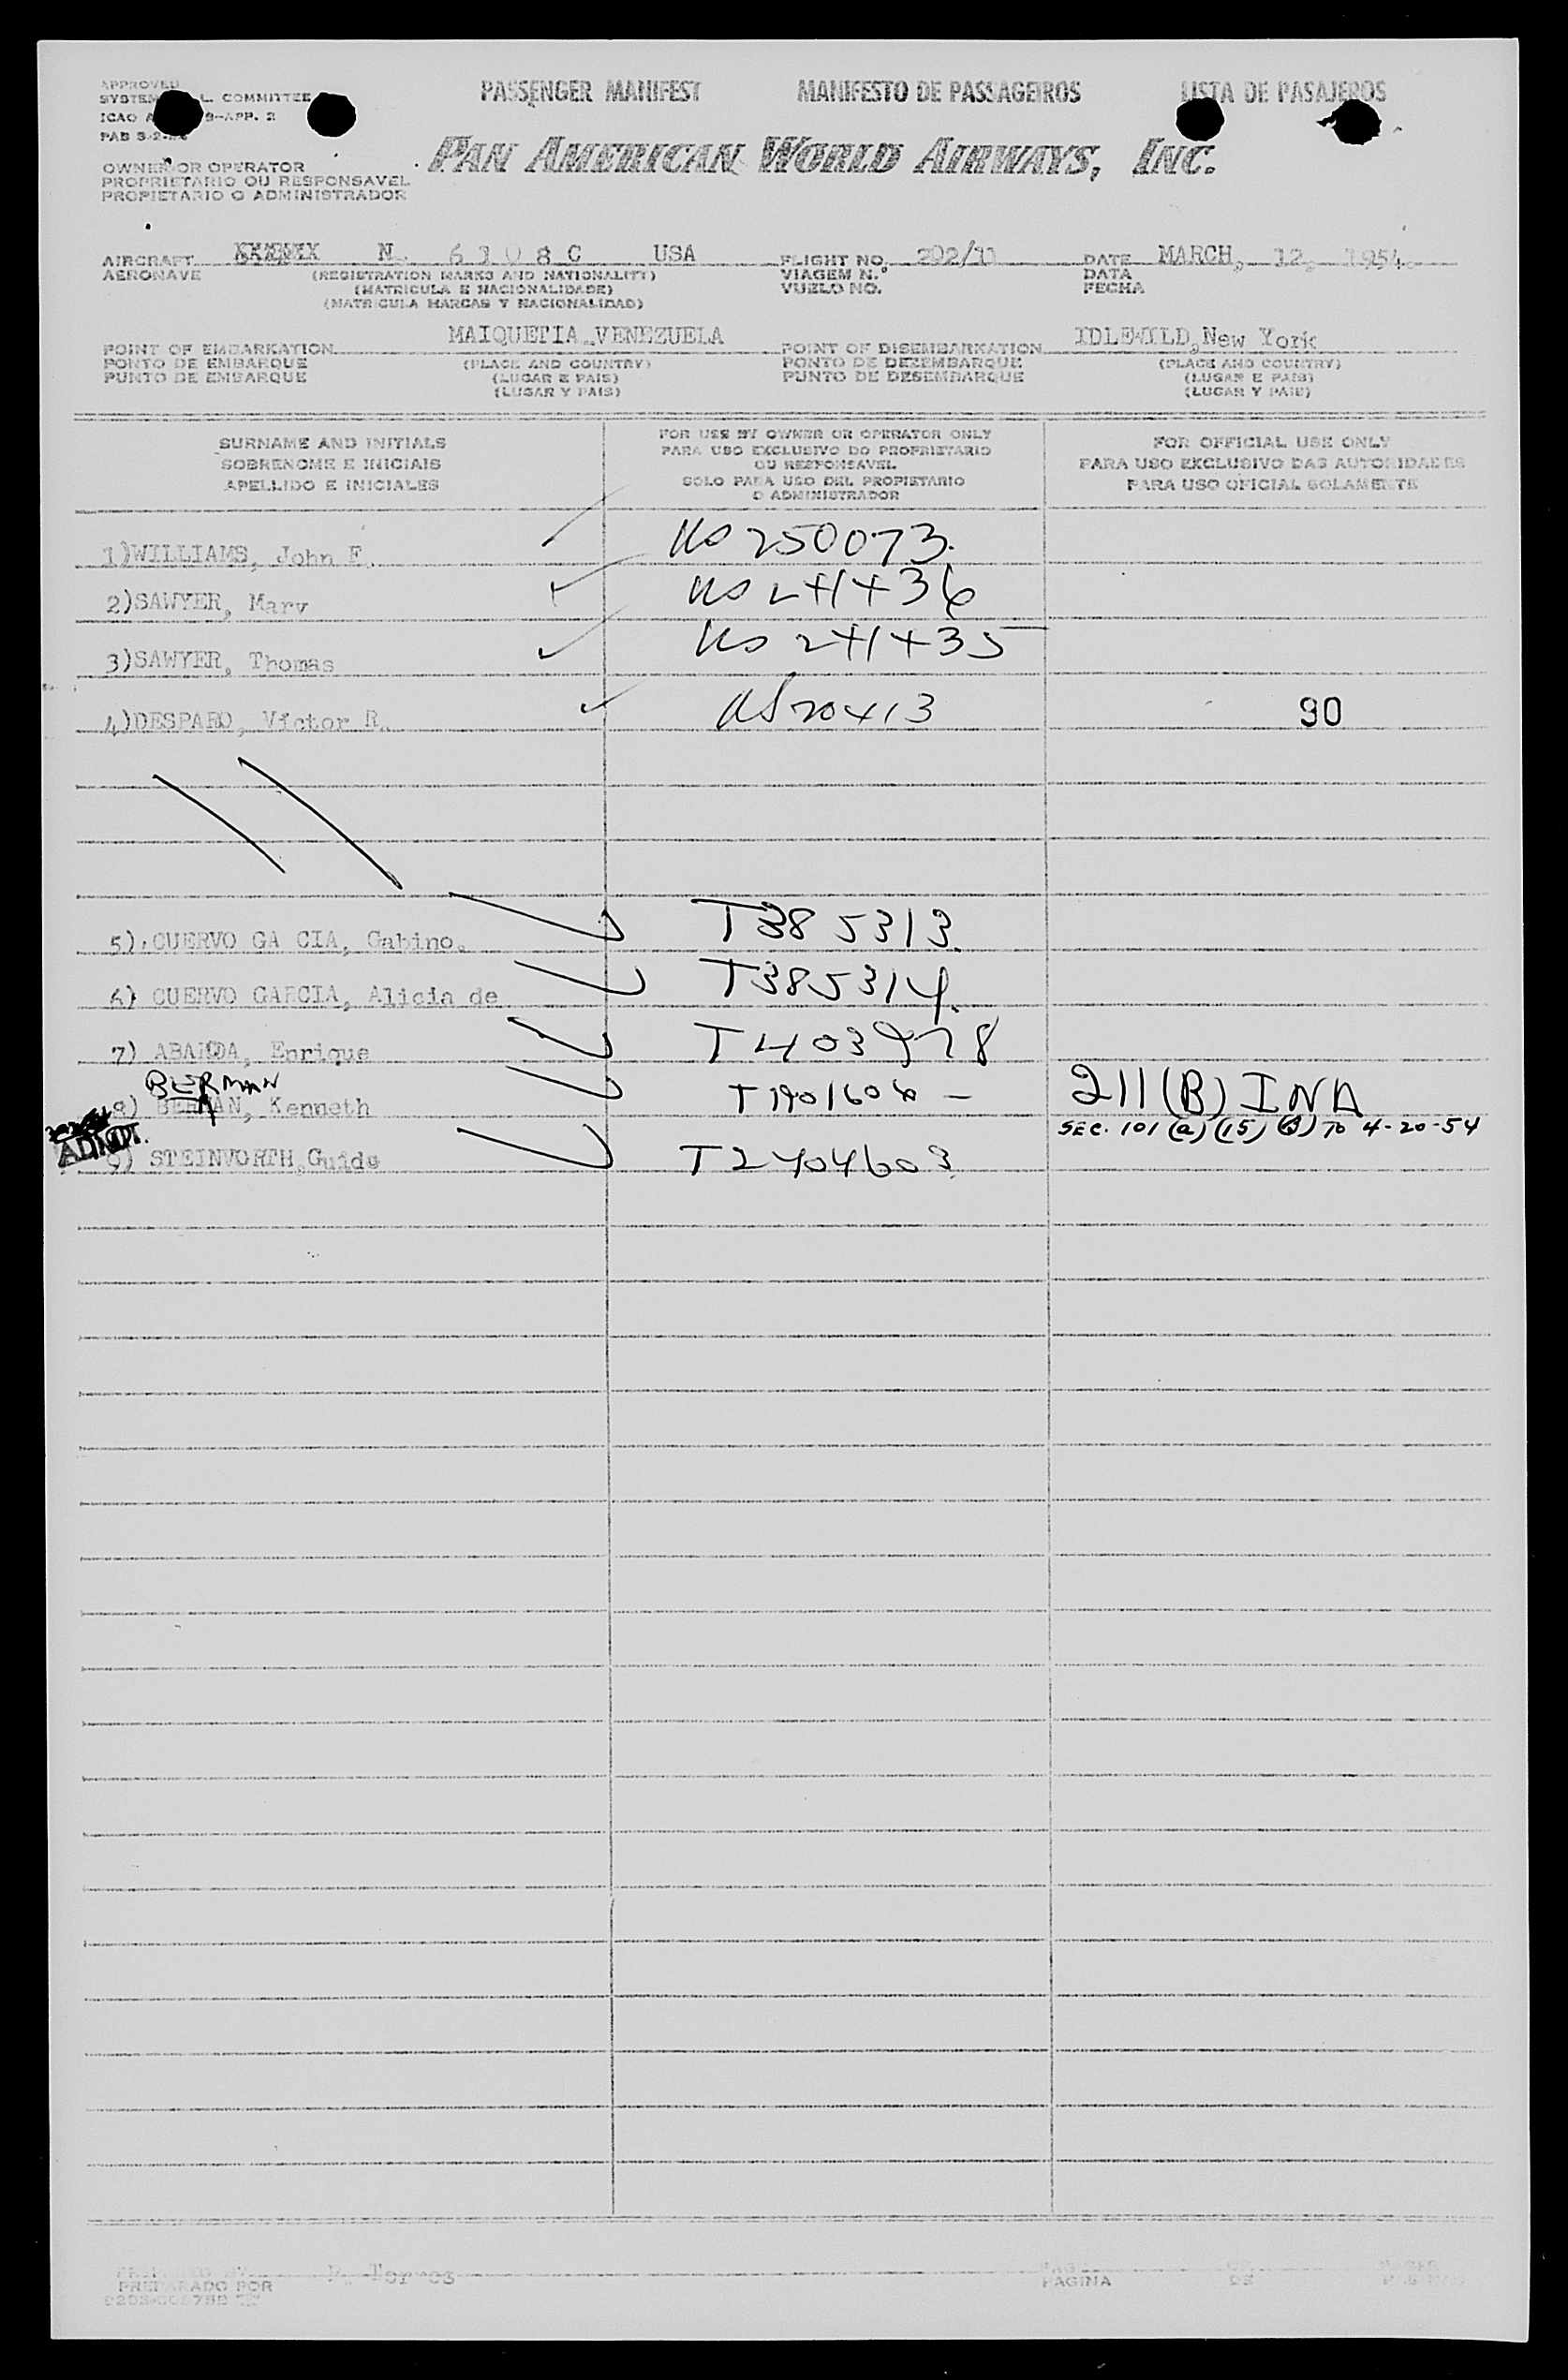 PASSENGER MANIFEST MANIFESTO DE PASSAGEIROS LISTA DE PASAJEROS
APPROVED
SYSTEM L. COMMITTEE
ICAO A 9-APP. 2
PAB
PAN AMERICAN WORLD AIRWAYS, INC.
OWNER OR OPERATOR
PROPRIETARIO OU RESPONSAVEL
PROPIETARIO O ADMINISTRADOR
AIRCRAFT N 6108C USA FLIGHT NO. 202/11 DATE MARCH, 12, 1954.
AERONAVE (REGISTRATION MARKS AND NATIONALITY) VIAGEM N.º DATA
(MATRICULA E NACIONALIDADE) VUELO NO. FECHA
(MATRICULA MARCAS Y NACIONALIDAD)
POINT OF EMBARKATION MAIQUETIA VENEZUELA POINT OF DISEMBARKATION IDLEWILD, New York
PONTO DE EMBARQUE (PLACE AND COUNTRY) PONTO DE DEZEMBARQUE (PLACE AND COUNTRY)
PUNTO DE EMBARQUE (LUGAR E PAIS) PUNTO DE DESEMBARQUE (LUGAR E PAIS)
(LUGAR Y PAIS) (LUGAR Y PAIS)
SURNAME AND INITIALS
SOBRENOME E INICIAIS
APELLIDO E INICIALES
FOR USE BY OWNER OR OPERATOR ONLY
PARA USO EXCLUSIVO DO PROPRIETARIO
OU RESPONSAVEL
SOLO PARA USO DEL PROPIETARIO
O ADMINISTRADOR
FOR OFFICIAL USE ONLY
PARA USO EXCLUSIVO DAS AUTORIDADES
PARA USO OFICIAL SOLAMENTE
1)WILLIAMS, John F. US 250073.
2)SAWYER, Mary US 241436
3)SAWYER, Thomas US 241435
4)DESPARD, Victor R. US 20413 90
5) CUERVO GA CIA, Gabino. T385313.
6) CUERVO GARCIA, Alicia de T385314.
7) ABANDA, Enrique T403978
BERMAN
8) BERMAN, Kenneth T1901606 — 211(B) INA
SEC. 101 (a) (15) (B) TO 4-20-54
ADMDT.
9) STEINVORTH, Guido T2404603
PREPARADO POR
PAGINA